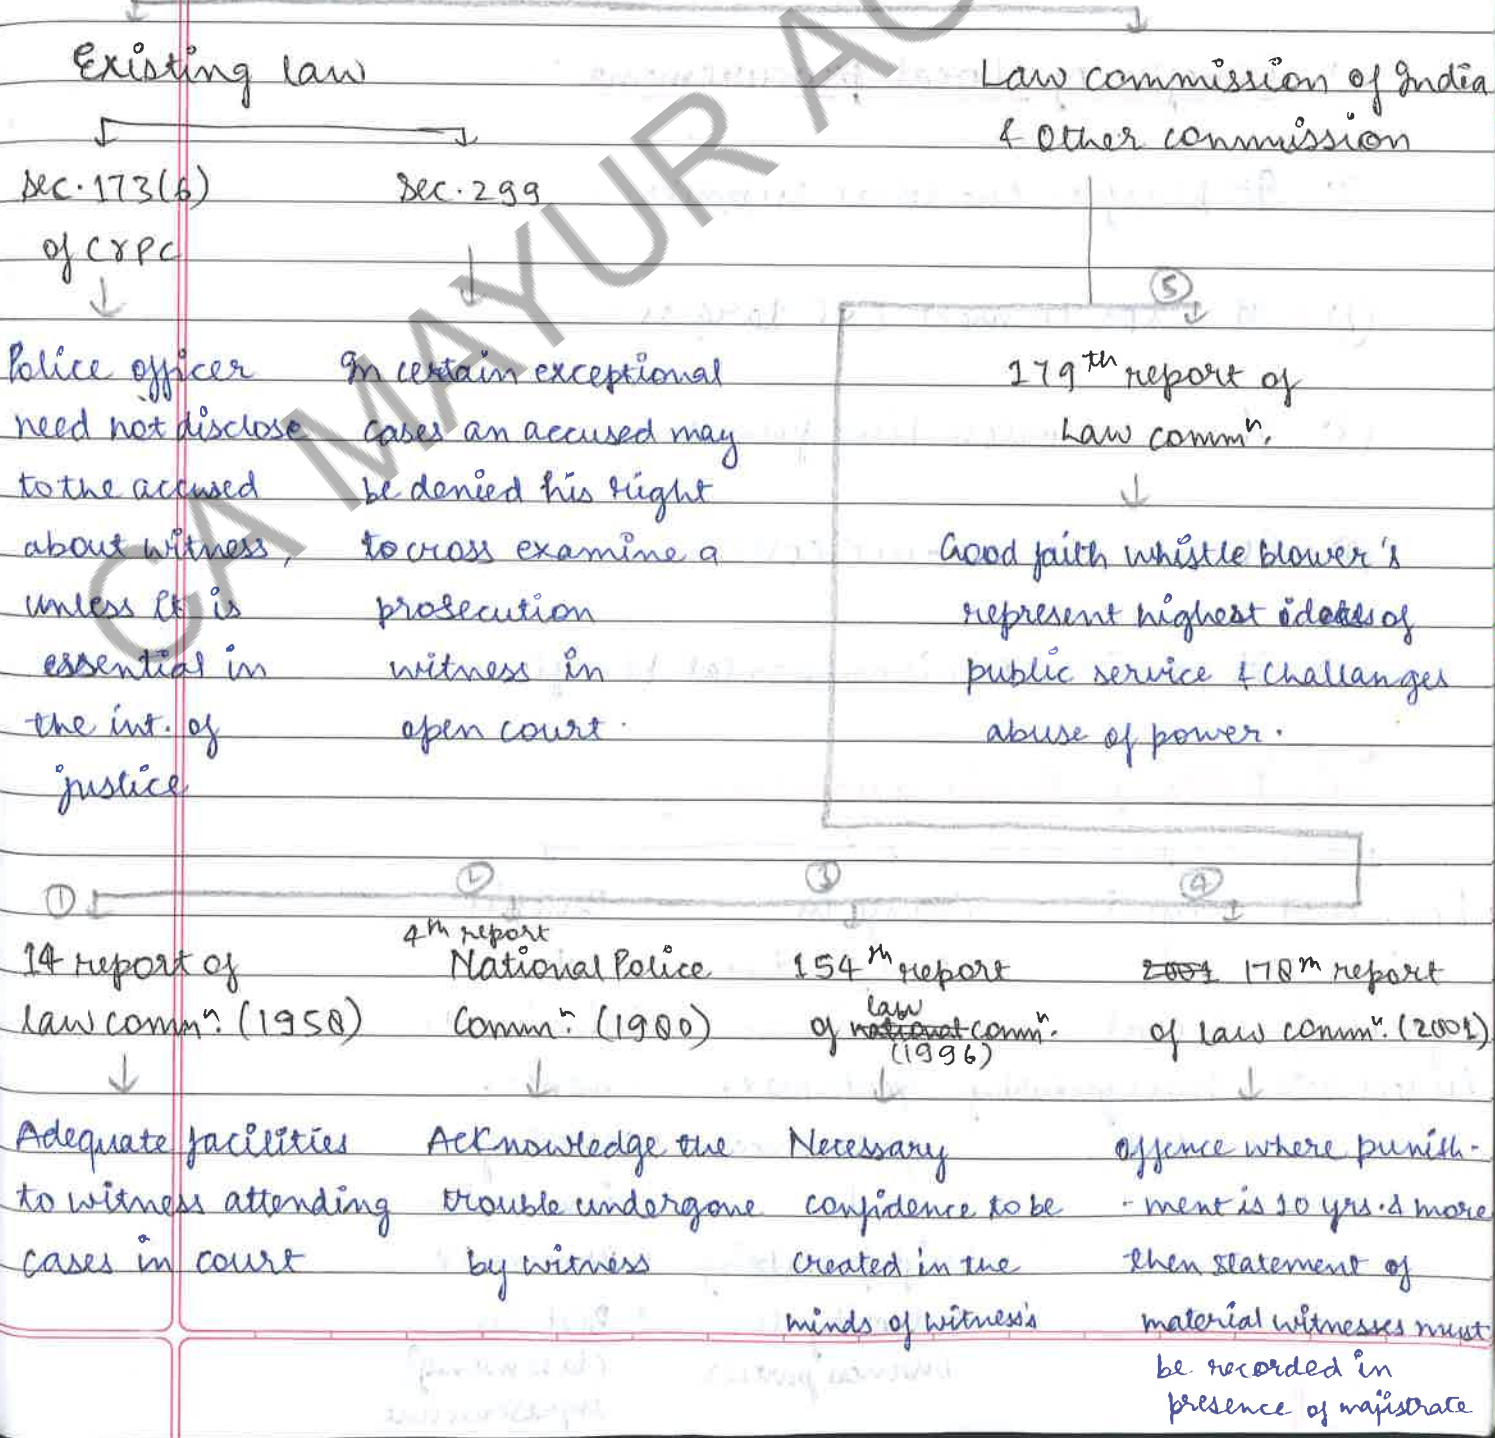 Existing law
Law commission of India
& Other commission
Sec. 173(6)
of CrPC
Sec. 299
Police officer
need not disclose
to the accused
about witness,
unless it is
essential in
the int. of
justice
In certain exceptional
cases an accused may
be denied his right
to cross examine a
prosecution
witness in
open court.
⑤
179th report of
Law commn.
Good faith whistle blower's
represent highest ideals of
public service & challanges
abuse of power.
①
14 report of
law commn. (1958)
Adequate facilities
to witness attending
cases in court
②
4th report
National Police
Commn. (1980)
Acknowledge the
trouble undergone
by witness
③
154th report
law
of national commn.
(1996)
Necessary
confidence to be
created in the
minds of witness's
④
2001 178th report
of law commn. (2001)
offence where punish-
-ment is 10 yrs. & more
then statement of
material witnesses must
be recorded in
presence of majistrate
CA MAYUR